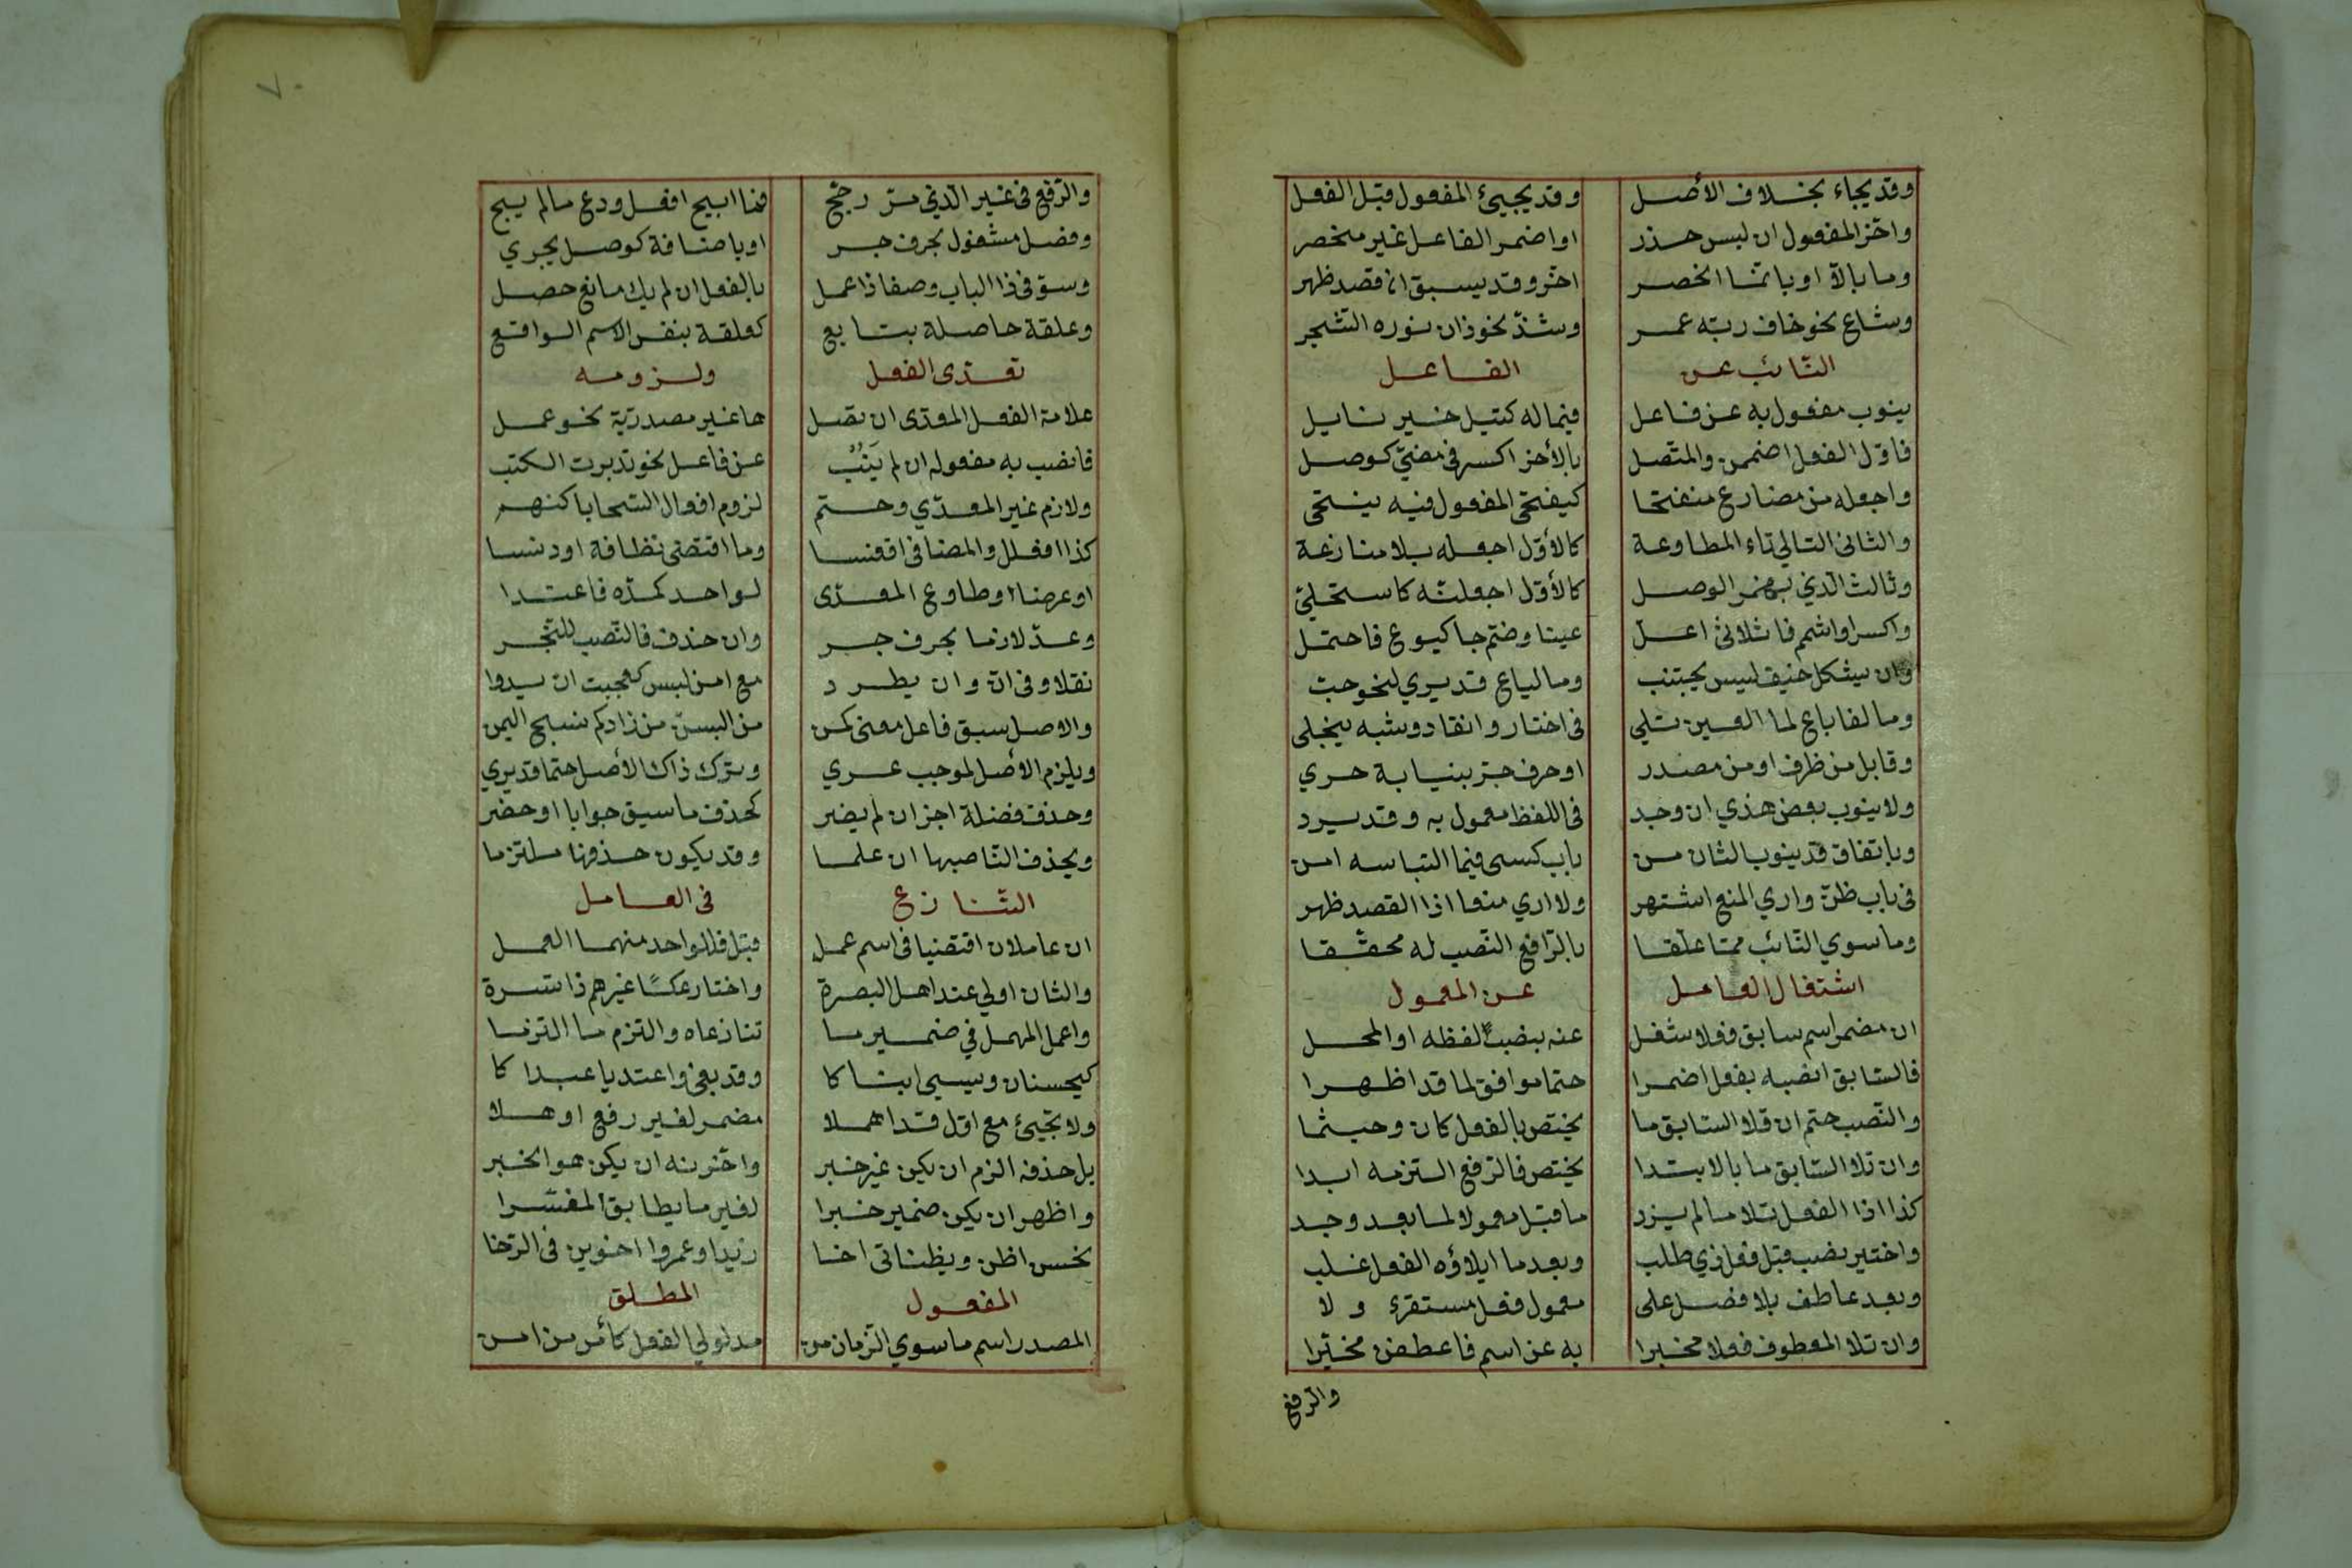 وقد يجاء بخلاف الأصل وقد يجيئ المفعول قبل الفعل
واخّر المفعول ان لبس حذر او اضمر الفاعل غير منحصر
وما بالّا او بانّما انحصر اخّر وقد يسبق ان قصد ظهر
وشاع نحو خاف ربّه عمر وشذّ نحو زان نوره الشّجر
النّائب عن الفاعل
ينوب مفعول به عن فاعل فيما له كنيل خير نايل
فاوّل الفعل اضممن والمتّصل بالأخر اكسر في مضيّ كوصل
واجعله من مضارع منفتحا كينتحي المقول فيه ينتحى
والثانى التالي تاء المطاوعة كالأوّل اجعله بلا منازعة
وثالث الّذي بهمز الوصل كالأوّل اجعلنّه كاستحلي
واكسر او اشمم فا ثلاثي اعلّ عينا وضمّ جا كبوع فاحتمل
وان بشكل خيف لبس يجتنب وما لباع قد يري لنحو حبّ
وما لفا باع لما العين تلي فى اختار وانقاد وشبه ينجلى
وقابل من ظرف او من مصدر او حرف جرّ بنيابة حري
ولا ينوب بعض هذي ان وجد في اللفظ مفعول به وقد يرد
وباتفاق قد ينوب الثان من باب كسى فيما التباسه امن
في باب ظنّ واري المنع اشتهر ولا اري منعا اذا القصد ظهر
وما سوي النّائب ممّا علّقا بالرّافع النّصب له محقّقا
اشتغال العامل عن المعمول
ان مضمر اسم سابق فعلا شغل عنه بنصب لفظه او المحل
فالسّابق انصبه بفعل اضمرا حتما موافق لما قد اظهرا
والنّصب حتم ان تلا السّابق ما يختص بالفعل كان وحيثما
وان تلا السّابق ما بالابتدا يختص فالرّفع التزمه ابدا
كذا اذا الفعل تلا ما لم يرد ما قبل معمولا لما بعد وجد
واختير نصب قبل فعل ذي طلب وبعد ما ايلاؤه الفعل غلب
وبعد عاطف بلا فصل على معمول فعل مستقرّ اولا
وان تلا المعطوف فعلا مخبرا به عن اسم فاعطفن مخيّرا
والرفع
٧٠
والرّفع في غير الّذي مرّ رجّح فما ابيح افعل ودع ما لم يبح
وفصل مشغول بحرف جر او باضافة كوصل يجري
وسوّ في ذا الباب وصفا ذا عمل بالفعل ان لم يك مانع حصل
وعلقة حاصلة بتابع كعلقة بنفس الاسم الواقع
تعدّى الفعل ولزومه
علامة الفعل المعدّى ان تصل ها غير مصدريّة نحو عمل
فانصب به مفعوله ان لم يَنُبْ عن فاعل نحو تدبرت الكتب
ولازم غير المعدّي وحتم لزوم افعال السّجايا كنهم
كذا افعلل والمضاهي اقعنسا وما اقتضى نظافة او دنسا
او عرضا او طاوع المعدّى لواحد كمدّه فاعتدا
وعدّ لازما بحرف جر وان حذف فالنّصب للمنجر
نقلا وفى انّ وان يطرد مع امن لبس كعجبت ان يدوا
والاصل سبق فاعل معنى كمن من البسن من زاركم نسج اليمن
ويلزم الأصل لموجب عري وترك ذاك الأصل حتما قد يري
وحذف فضلة اجز ان لم يضر كحذف ما سيق جوابا او حصر
ويحذف النّاصبها ان علما وقد يكون حذفها ملتزما
التّنازع فى العامل
ان عاملان اقتضيا في اسم عمل قبل فللواحد منهما العمل
والثان اولي عند اهل البصرة واختار عكسًا غيرهم ذا اسرة
واعمل المهمل في ضمير ما تنازعاه والتزم ما التزما
كيحسنان ويسيئ ابناكا وقد بغى واعتديا عبداكا
ولا تجيئ مع اوّل قد اهملا مضمر لغير رفع اوهلا
بل حذفه الزم ان يكن غير خبر واخّرنه ان يكن هو الخبر
واظهر ان يكن ضمير خبرا لغير ما يطابق المفسّرا
نحو اظن ويظنانى اخا زيدا وعمروا اخوين في الرّخا
المفعول المطلق
المصدر اسم ما سوي الزّمان من مدلولي الفعل كأمن من امن